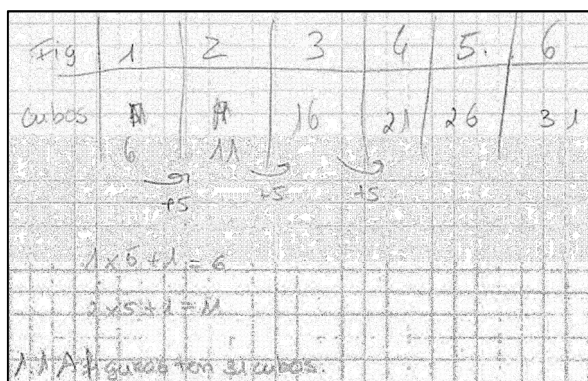 Fig 1 2 3 4 5. 6
Cubos 16 21 26 31
6 11
+5 +5 +5
1x5+1=6
2x5+1=11
1.1 A figura 6 tem 31 cubos.